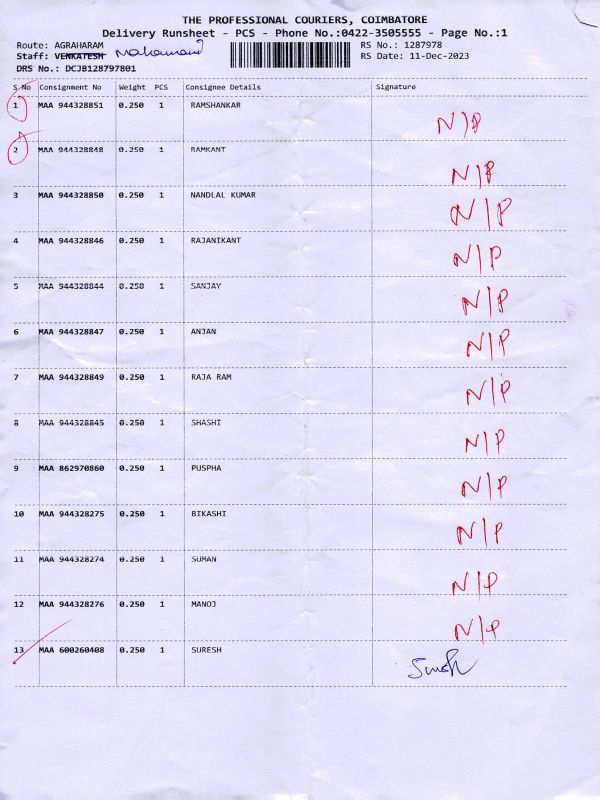 THE PROFESSIONAL COURIERS, COIMBATORE
Delivery Runsheet - PCS - Phone No.:0422-3505555 - Page No.:1
Route: AGRAHARAM RS No.: 1287978
Staff: VENKATESH RS Date: 11-Dec-2023
DRS No.: DCJB128797801
S No Consignment No Weight PCS Consignee Details Signature
1 MAA 944328851 0.250 1 RAMSHANKAR N/P
2 MAA 944328848 0.250 1 RAMKANT N/P
3 MAA 944328850 0.250 1 NANDLAL KUMAR N/P
4 MAA 944328846 0.250 1 RAJANIKANT N/P
5 MAA 944328844 0.250 1 SANJAY N/P
6 MAA 944328847 0.250 1 ANJAN N/P
7 MAA 944328849 0.250 1 RAJA RAM N/P
8 MAA 944328845 0.250 1 SHASHI N/P
9 MAA 862970860 0.250 1 PUSPHA N/P
10 MAA 944328275 0.250 1 BIKASHI N/P
11 MAA 944328274 0.250 1 SUMAN N/P
12 MAA 944328276 0.250 1 MANOJ N/P
13 MAA 600260408 0.250 1 SURESH